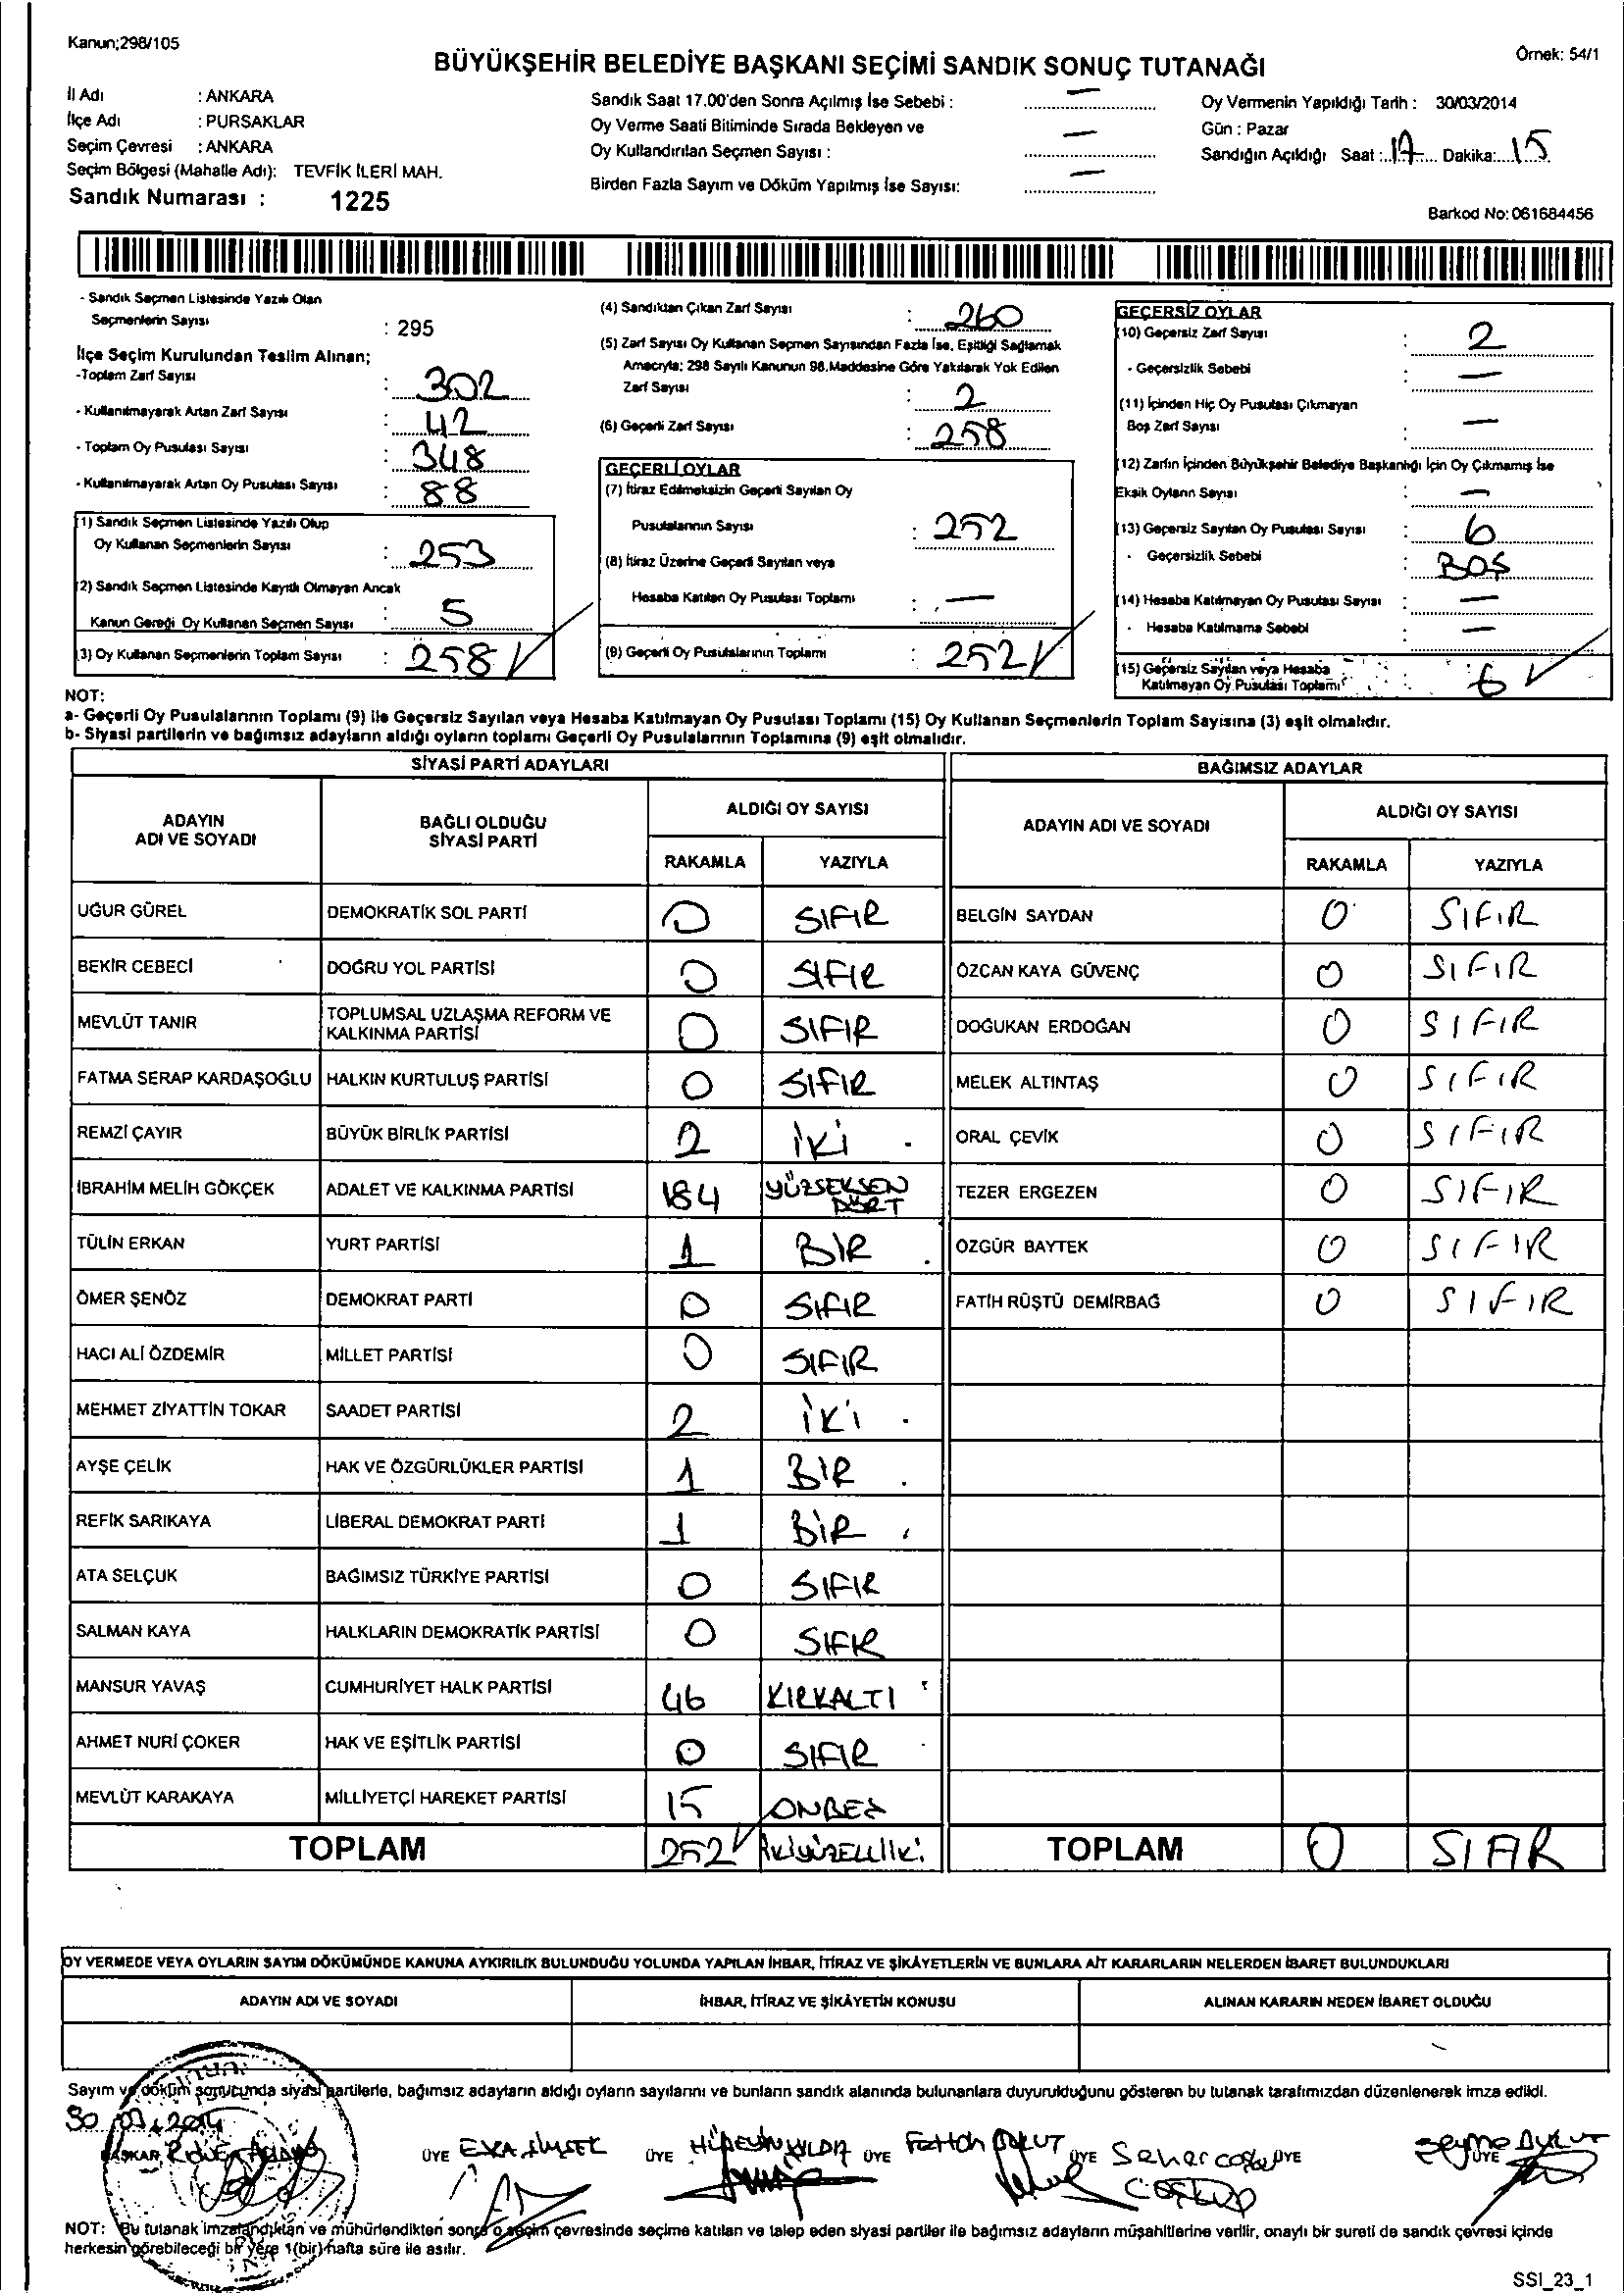 Kanun;298/105
BÜYÜKŞEHİR BELEDİYE BAŞKANI SEÇİMİ SANDIK SONUÇ TUTANAĞI
Örnek: 54/1
İl Adı : ANKARA
İlçe Adı : PURSAKLAR
Seçim Çevresi : ANKARA
Seçim Bölgesi (Mahalle Adı): TEVFİK İLERİ MAH.
Sandık Numarası : 1225
Sandık Saat 17.00'den Sonra Açılmış İse Sebebi : —
Oy Verme Saati Bitiminde Sırada Bekleyen ve
Oy Kullandırılan Seçmen Sayısı : —
Birden Fazla Sayım ve Döküm Yapılmış İse Sayısı: —
Oy Vermenin Yapıldığı Tarih : 30/03/2014
Gün : Pazar
Sandığın Açıldığı Saat : 17 Dakika: 15
Barkod No: 061684456
- Sandık Seçmen Listesinde Yazılı Olan
Seçmenlerin Sayısı : 295
İlçe Seçim Kurulundan Teslim Alınan;
-Toplam Zarf Sayısı : 302
- Kullanılmayarak Artan Zarf Sayısı : 42
- Toplam Oy Pusulası Sayısı : 348
- Kullanılmayarak Artan Oy Pusulası Sayısı : 88
(1) Sandık Seçmen Listesinde Yazılı Olup
Oy Kullanan Seçmenlerin Sayısı : 253
(2) Sandık Seçmen Listesinde Kayıtlı Olmayan Ancak
Kanun Gereği Oy Kullanan Seçmen Sayısı : 5
(3) Oy Kullanan Seçmenlerin Toplam Sayısı : 258
(4) Sandıktan Çıkan Zarf Sayısı : 260
(5) Zarf Sayısı Oy Kullanan Seçmen Sayısından Fazla İse, Eşitliği Sağlamak
Amacıyla; 298 Sayılı Kanunun 98.Maddesine Göre Yakılarak Yok Edilen
Zarf Sayısı : 2
(6) Geçerli Zarf Sayısı : 258
GEÇERLİ OYLAR
(7) İtiraz Edilmeksizin Geçerli Sayılan Oy
Pusulalarının Sayısı : 252
(8) İtiraz Üzerine Geçerli Sayılan veya
Hesaba Katılan Oy Pusulası Toplamı : —
(9) Geçerli Oy Pusulalarının Toplamı : 252
GEÇERSİZ OYLAR
(10) Geçersiz Zarf Sayısı : 2
- Geçersizlik Sebebi : —
(11) İçinden Hiç Oy Pusulası Çıkmayan
Boş Zarf Sayısı : —
(12) Zarfın İçinden Büyükşehir Belediye Başkanlığı İçin Oy Çıkmamış İse
Eksik Oyların Sayısı : —
(13) Geçersiz Sayılan Oy Pusulası Sayısı : 6
- Geçersizlik Sebebi : BOŞ
(14) Hesaba Katılmayan Oy Pusulası Sayısı : —
- Hesaba Katılmama Sebebi : —
(15) Geçersiz Sayılan veya Hesaba
Katılmayan Oy Pusulası Toplamı : 6
NOT:
a- Geçerli Oy Pusulalarının Toplamı (9) ile Geçersiz Sayılan veya Hesaba Katılmayan Oy Pusulası Toplamı (15) Oy Kullanan Seçmenlerin Toplam Sayısına (3) eşit olmalıdır.
b- Siyasi partilerin ve bağımsız adayların aldığı oyların toplamı Geçerli Oy Pusulalarının Toplamına (9) eşit olmalıdır.
SİYASİ PARTİ ADAYLARI
ADAYIN ADI VE SOYADI BAĞLI OLDUĞU SİYASİ PARTİ ALDIĞI OY SAYISI
RAKAMLA YAZIYLA
UĞUR GÜREL DEMOKRATİK SOL PARTİ 0 SIFIR
BEKİR CEBECİ DOĞRU YOL PARTİSİ 0 SIFIR
MEVLÜT TANIR TOPLUMSAL UZLAŞMA REFORM VE KALKINMA PARTİSİ 0 SIFIR
FATMA SERAP KARDAŞOĞLU HALKIN KURTULUŞ PARTİSİ 0 SIFIR
REMZİ ÇAYIR BÜYÜK BİRLİK PARTİSİ 2 İKİ
İBRAHİM MELİH GÖKÇEK ADALET VE KALKINMA PARTİSİ 184 YÜZSEKSEN DÖRT
TÜLİN ERKAN YURT PARTİSİ 1 BİR
ÖMER ŞENÖZ DEMOKRAT PARTİ 0 SIFIR
HACI ALİ ÖZDEMİR MİLLET PARTİSİ 0 SIFIR
MEHMET ZİYATTİN TOKAR SAADET PARTİSİ 2 İKİ
AYŞE ÇELİK HAK VE ÖZGÜRLÜKLER PARTİSİ 1 BİR
REFİK SARIKAYA LİBERAL DEMOKRAT PARTİ 1 BİR
ATA SELÇUK BAĞIMSIZ TÜRKİYE PARTİSİ 0 SIFIR
SALMAN KAYA HALKLARIN DEMOKRATİK PARTİSİ 0 SIFIR
MANSUR YAVAŞ CUMHURİYET HALK PARTİSİ 46 KIRKALTI
AHMET NURİ ÇOKER HAK VE EŞİTLİK PARTİSİ 0 SIFIR
MEVLÜT KARAKAYA MİLLİYETÇİ HAREKET PARTİSİ 15 ONBEŞ
TOPLAM 252 İKİYÜZELLİİKİ
BAĞIMSIZ ADAYLAR
ADAYIN ADI VE SOYADI ALDIĞI OY SAYISI
RAKAMLA YAZIYLA
BELGİN SAYDAN 0 SIFIR
ÖZCAN KAYA GÜVENÇ 0 SIFIR
DOĞUKAN ERDOĞAN 0 SIFIR
MELEK ALTINTAŞ 0 SIFIR
ORAL ÇEVİK 0 SIFIR
TEZER ERGEZEN 0 SIFIR
ÖZGÜR BAYTEK 0 SIFIR
FATİH RÜŞTÜ DEMİRBAĞ 0 SIFIR
TOPLAM 0 SIFIR
OY VERMEDE VEYA OYLARIN SAYIM DÖKÜMÜNDE KANUNA AYKIRILIK BULUNDUĞU YOLUNDA YAPILAN İHBAR, İTİRAZ VE ŞİKÂYETLERİN VE BUNLARA AİT KARARLARIN NELERDEN İBARET BULUNDUKLARI
ADAYIN ADI VE SOYADI İHBAR, İTİRAZ VE ŞİKÂYETİN KONUSU ALINAN KARARIN NEDEN İBARET OLDUĞU
Sayım ve döküm sonucunda siyasi partilerle, bağımsız adayların aldığı oyların sayılarını ve bunların sandık alanında bulunanlara duyurulduğunu gösteren bu tutanak tarafımızdan düzenlenerek imza edildi.
30.03.2014
BAŞKAN ÜYE ÜYE ÜYE Fattah BULUT ÜYE Seher ÜYE
NOT: Bu tutanak imzalandıktan ve mühürlendikten sonra o seçim çevresinde seçime katılan ve talep eden siyasi partiler ile bağımsız adayların müşahitlerine verilir, onaylı bir sureti de sandık çevresi içinde
herkesin görebileceği bir yere 1(bir) hafta süre ile asılır.
SSI_23_1